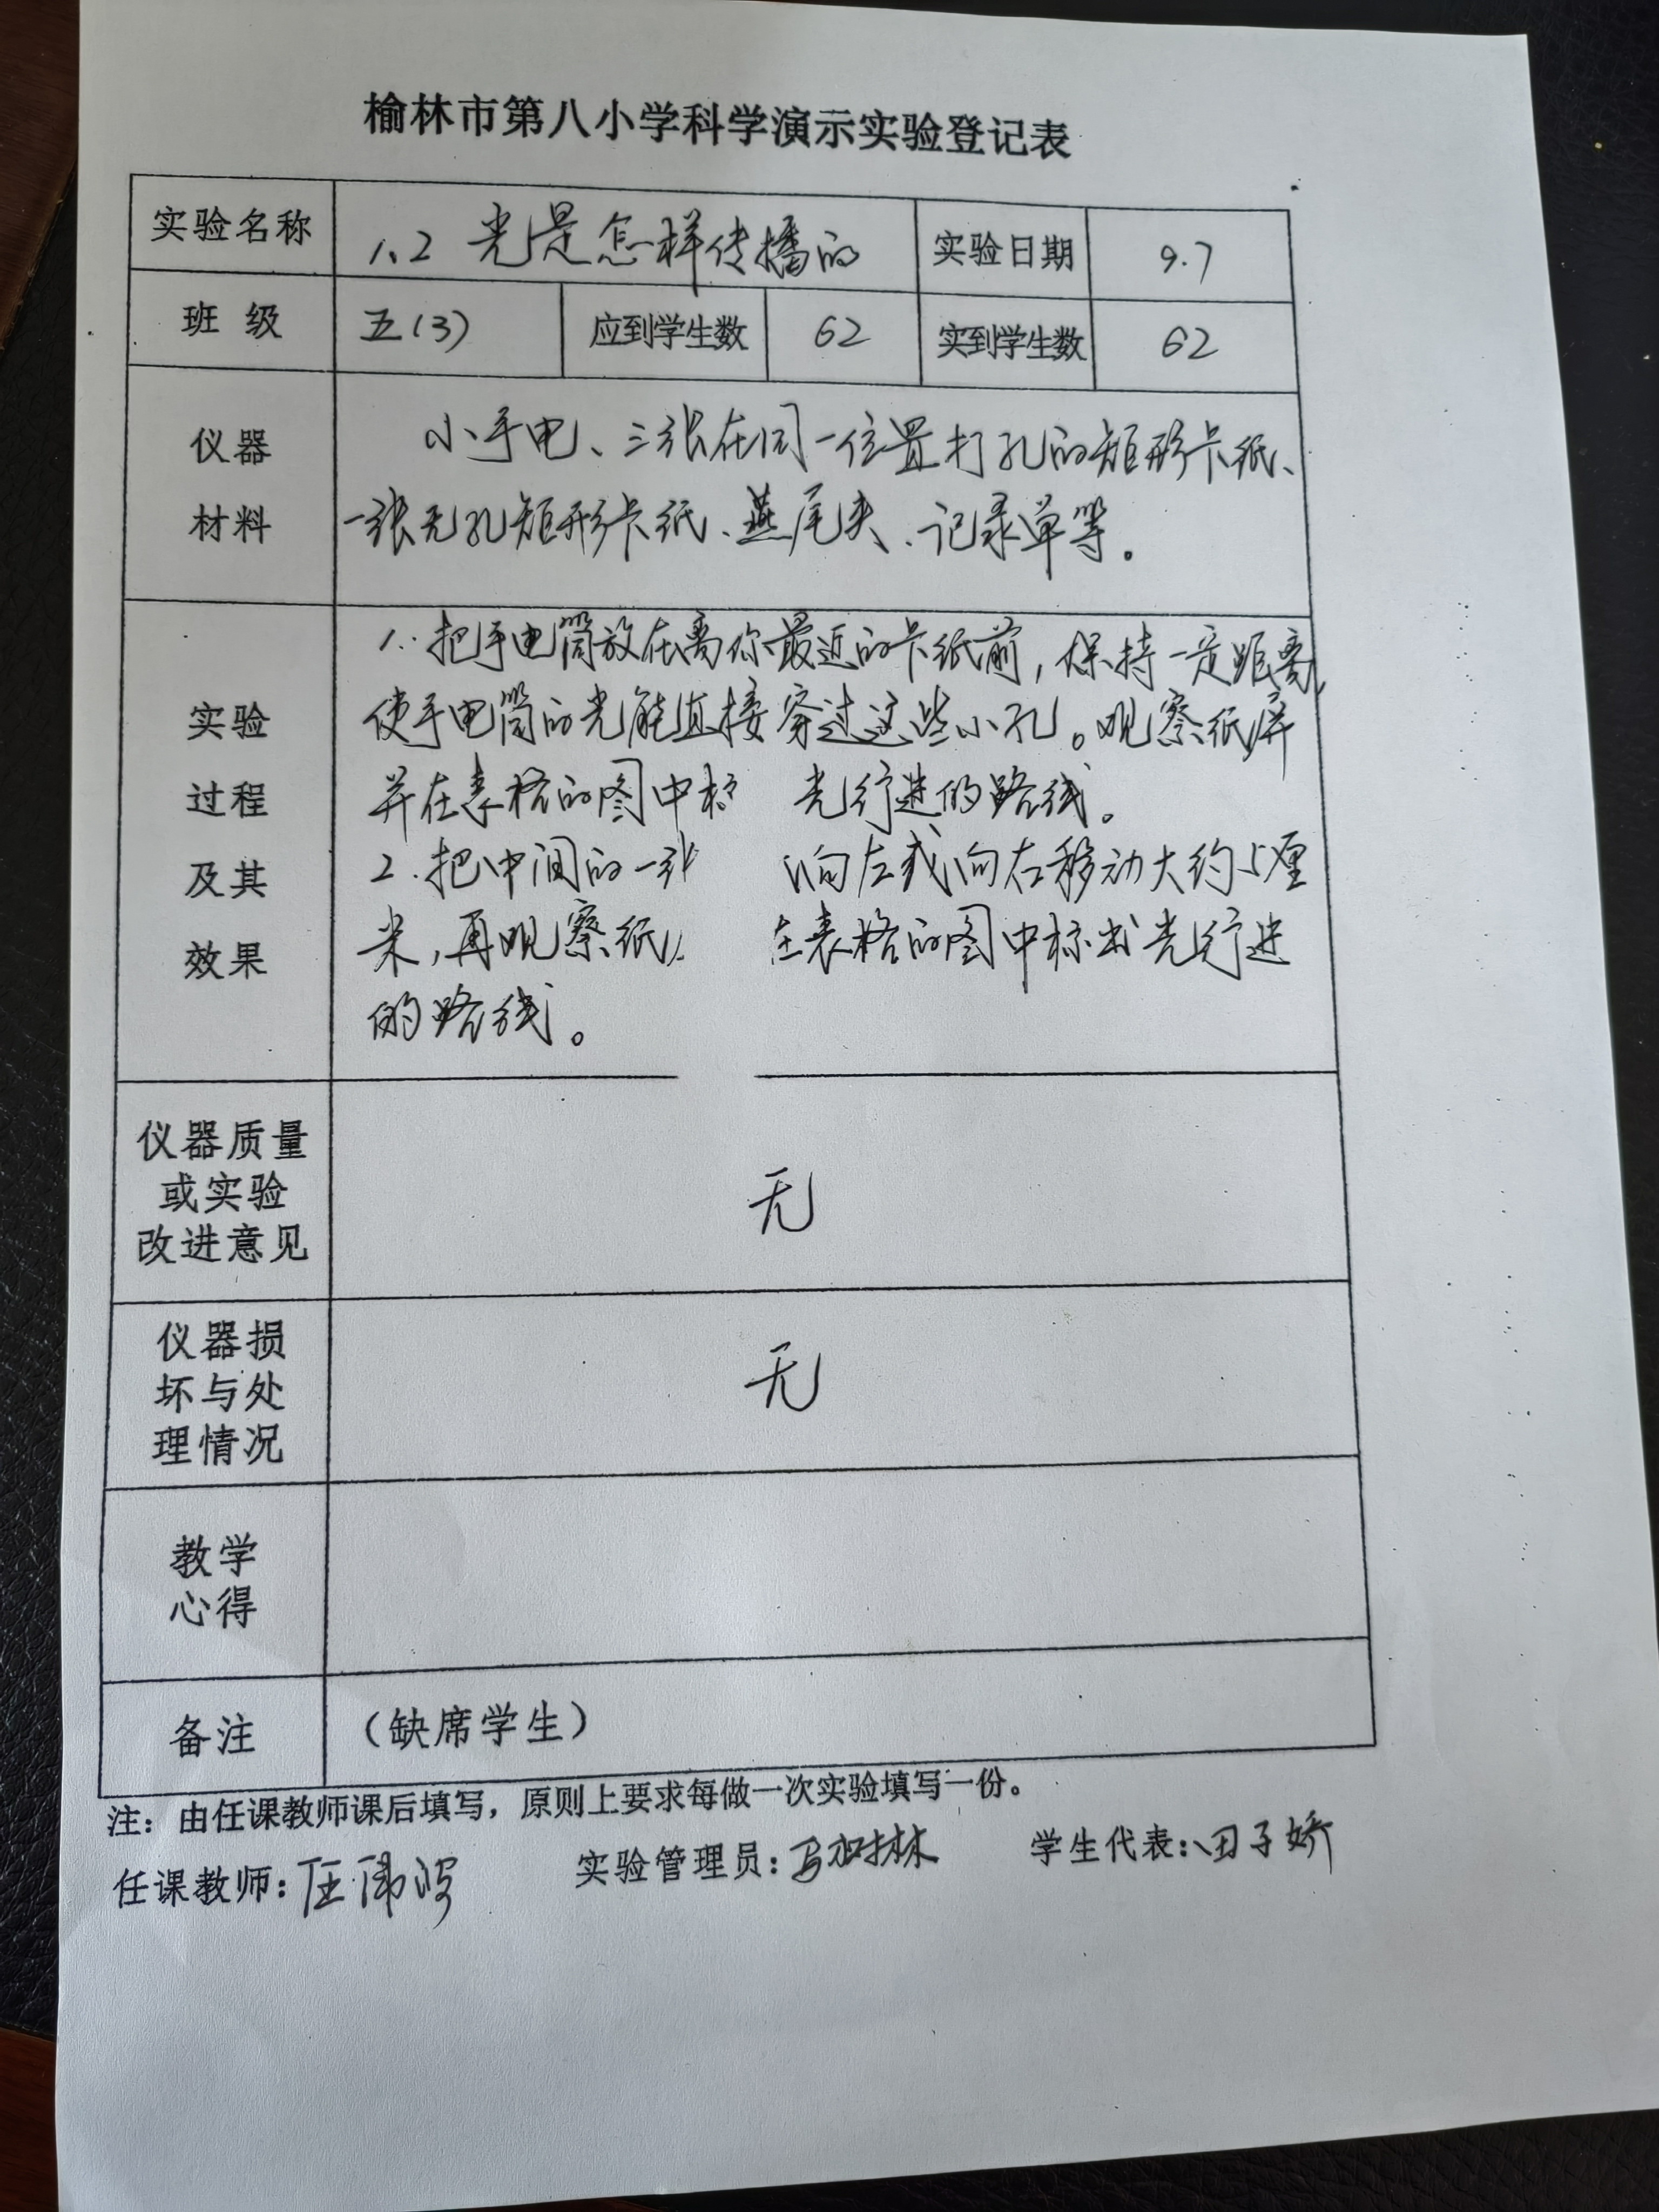 榆林市第八小学科学演示实验登记表
实验名称 1、2 光是怎样传播的 实验日期 9.7
班 级 五(3) 应到学生数 62 实到学生数 62
仪器
材料
小手电、三张在同一位置打孔的矩形卡纸、
一张无孔矩形卡纸、燕尾夹、记录单等。
实验
过程
及其
效果
1.把手电筒放在离你最近的卡纸前,保持一定距离,
使手电筒的光能直接穿过这些小孔。观察纸屏
并在表格的图中 光行进的路线。
2.把中间的一 向左或向右移动大约5厘
米,再观察纸 在表格的图中标出光行进
的路线。
仪器质量
或实验
改进意见
无
仪器损
坏与处
理情况
无
教学
心得
备注 (缺席学生)
注:由任课教师课后填写,原则上要求每做一次实验填写一份。
任课教师: 实验管理员: 学生代表:田子娇